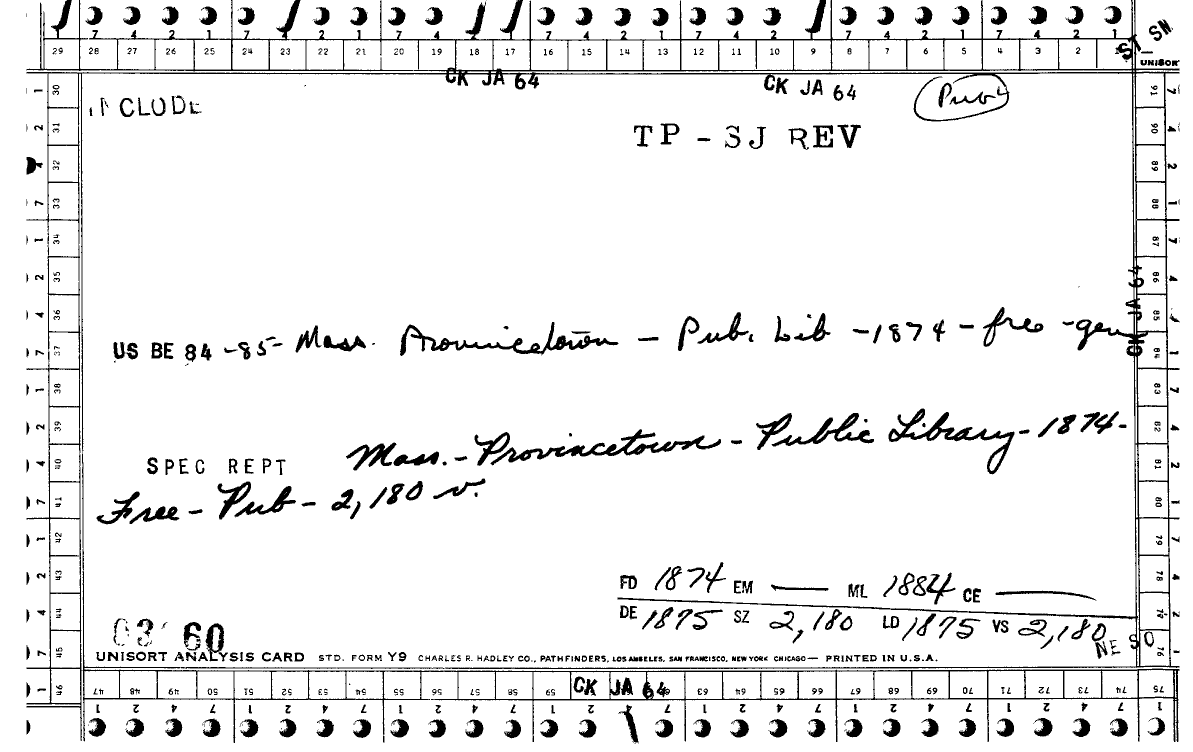 7 4 2 1 7 4 2 1 7 4 2 1 7 4 2 1 7 4 2 1 7 4 2 1 7 4 2 1
29 28 27 26 25 24 23 22 21 20 19 18 17 16 15 14 13 12 11 10 9 8 7 6 5 4 3 2 1
ST_SN
UNISORT
CK JA 64 CK JA 64
INCLUDE
Pub
TP - SJ REV
CK JA 64
US BE 84-85- Mass. Provincetown - Pub. Lib - 1874 - free - gen
SPEC REPT Mass. - Provincetown - Public Library - 1874 -
Free - Pub - 2,180 v.
FD 1874 EM — ML 1884 CE —
DE 1875 SZ 2,180 LD 1875 VS 2,180
NE SO
03 60
UNISORT ANALYSIS CARD STD. FORM Y9 CHARLES R. HADLEY CO., PATHFINDERS, LOS ANGELES, SAN FRANCISCO, NEW YORK CHICAGO — PRINTED IN U.S.A.
46 47 48 49 50 51 52 53 54 55 56 57 58 59 CK JA 64 63 64 65 66 67 68 69 70 71 72 73 74 75
30 31 32 33 34 35 36 37 38 39 40 41 42 43 44 45
91 90 89 88 87 86 85 84 83 82 81 80 79 78 77 76